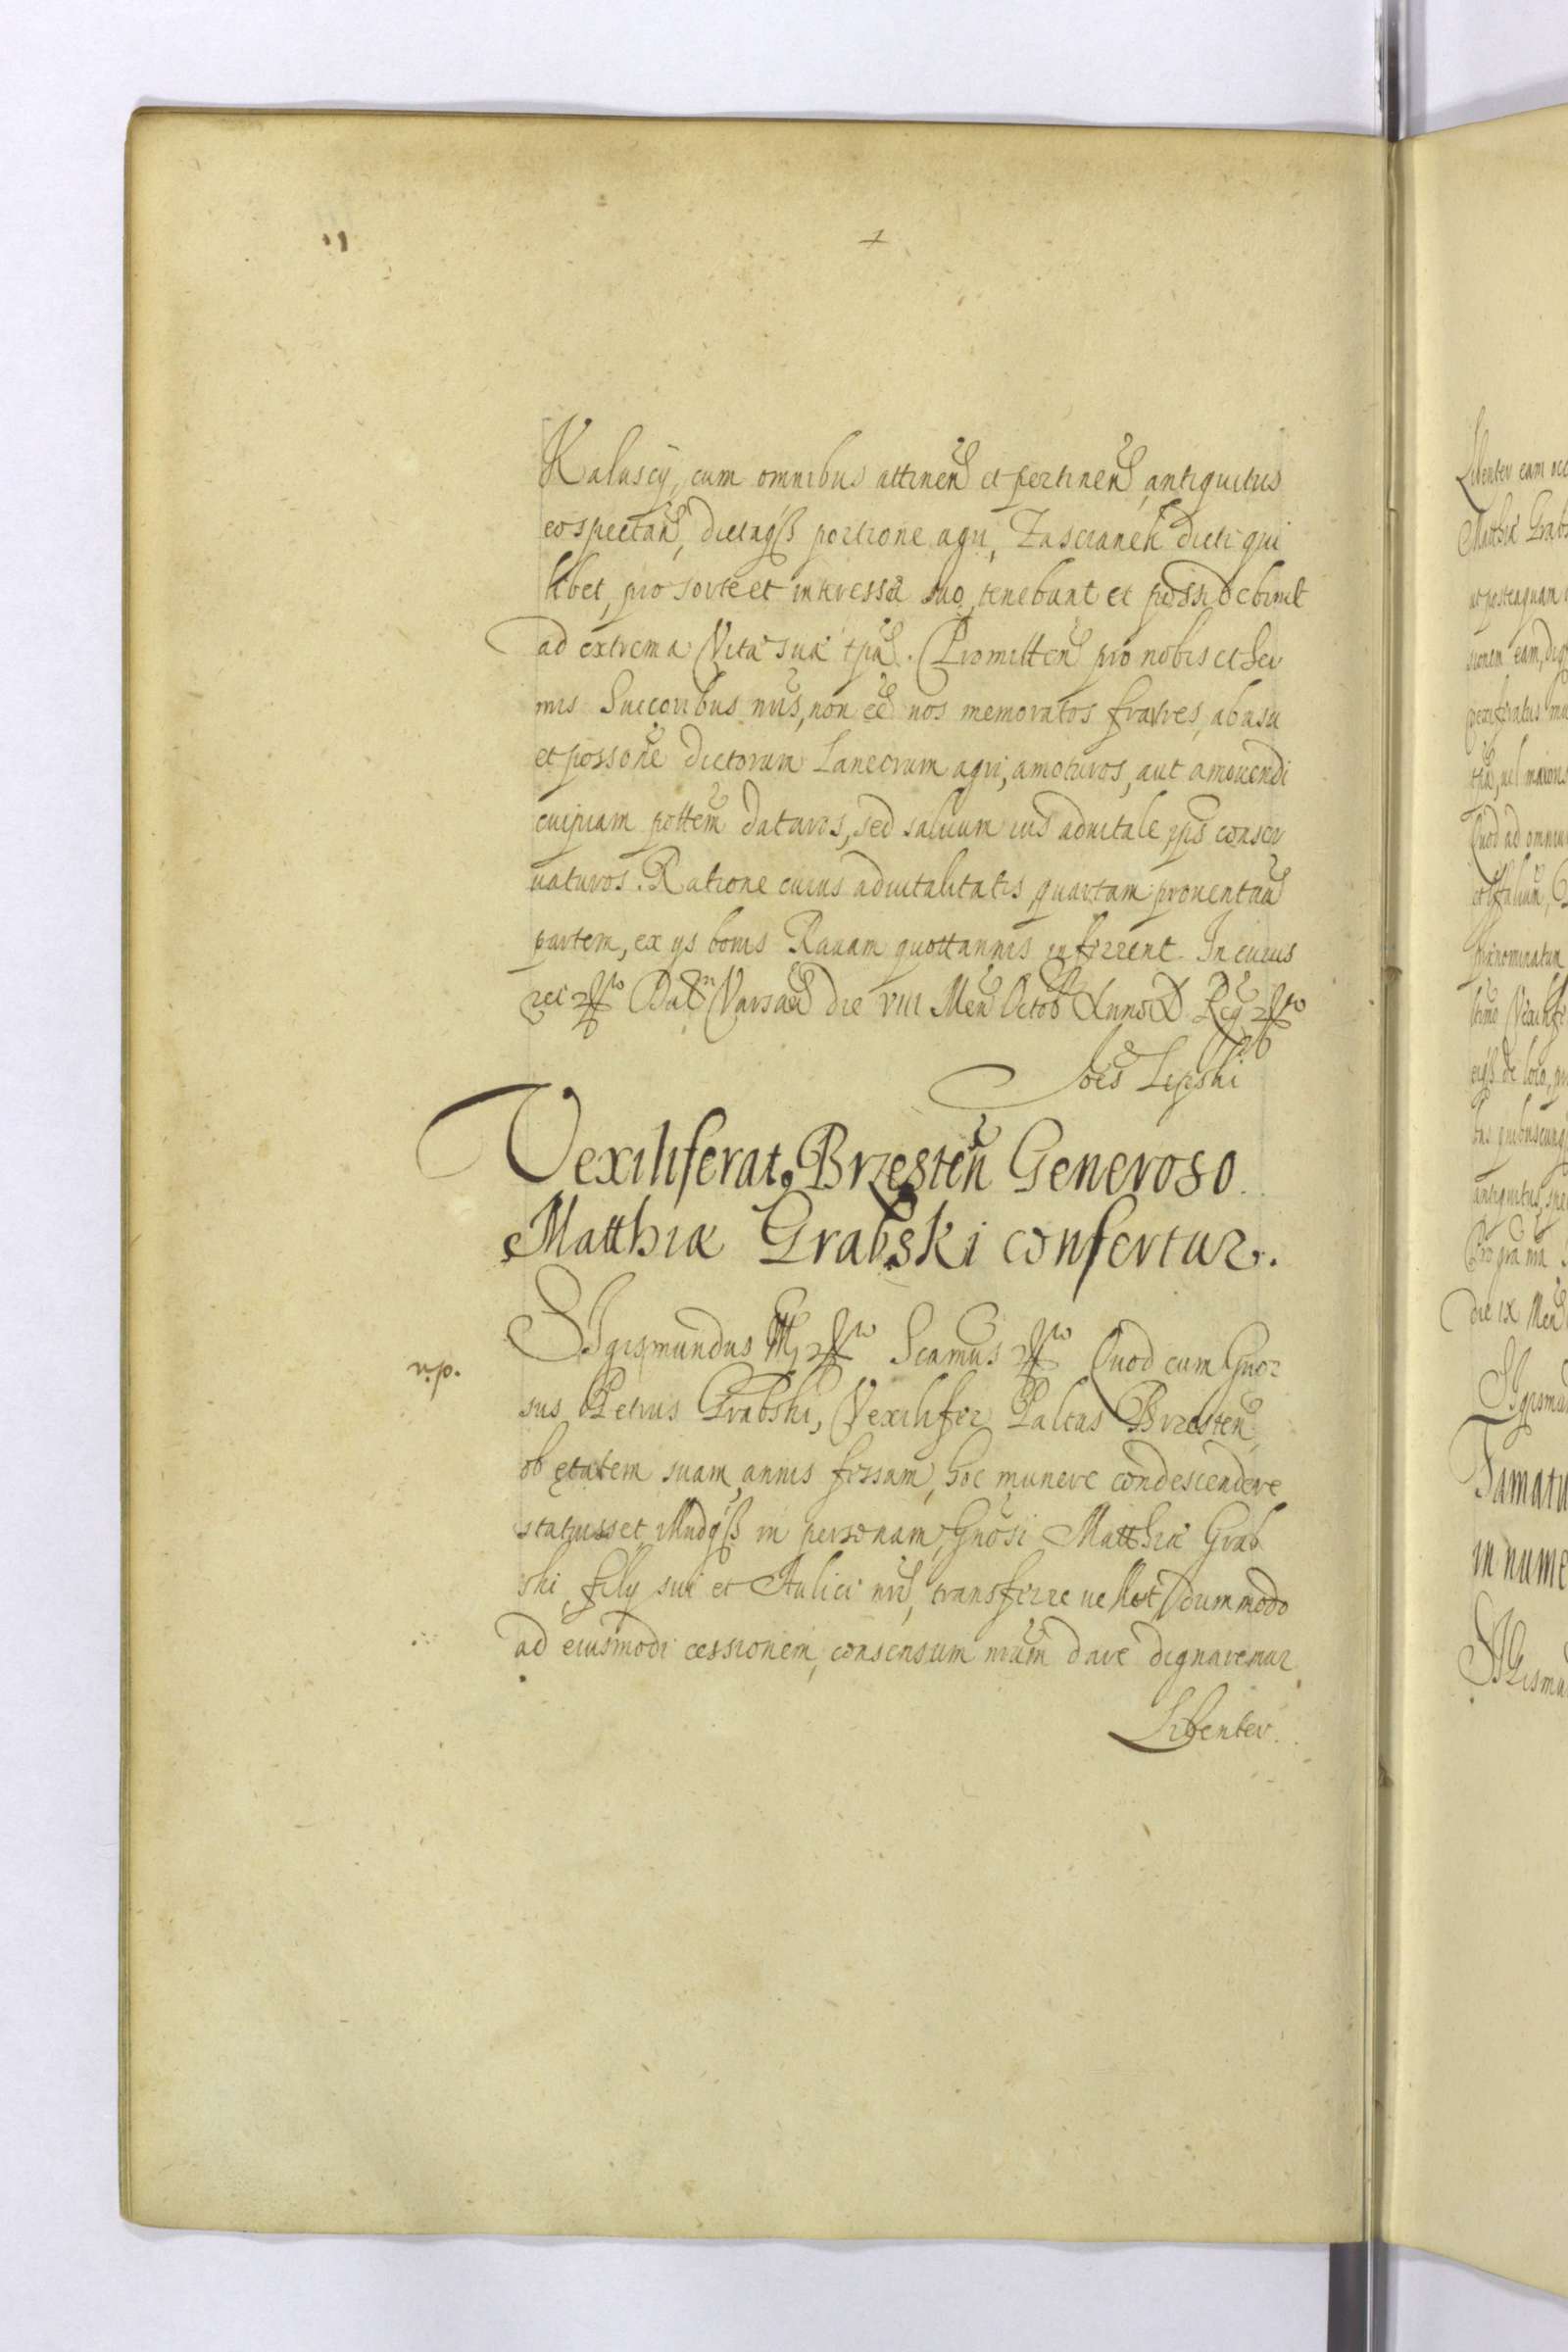 Kaluscÿ, cum omnibus attineñ et pertineñ antiquitus
eo spectañ, dictaqß portione agri, Zascianek dicti qui
libet, pro sorte et interesse suo, tenebunt et possidebunt
ad extrema Vitæ suæ tp̃a. Promitteñ pro nobis et Ser
mis Succoribus nr̃is, non eẽ nos memoratos fratres, ab usu
et possoñe dictorum Laneorum agri, amoturos, aut amouendi
cuipiam potteм̃ daturos, sed saluum ius aduitale ip̃is conser
uaturos. Ratione cuius aduitalitatis, quartam prouentuũ
partem, ex ijs bonis Rauam quottannis inferrent. In cuius
rei Datt Varsauiæ die VIII Meñ Octob Anno D Reg
Joẽs Lipski
Vexiliferat. Brzesteñ Generoso
Matthiæ Grabski confertur.
Sigismundus III Sc̃amus Quod cum Gnõ
sus Petrus Grabski, Vexilifer Paltus Brzesteñ
ob ętatem suam, annis fessam, hoc munere condescendere
statuisset, illudqß in personam, Gnõsi Matthiæ Grab
ski, filÿ sui et Aulici nr̃i, transferre uellet, dummodo
ad eiusmodi cessionem, consensum nr̃um dare dignaremur
Libenter.
Libenter eam
Matthiæ Grab
ut posteaquam
sionem eam,
uel maiori
Quod ad omni
de loco,
quibuscunq
antiquitus,
die IX Meñ
Sigismu
Famatu
in nume